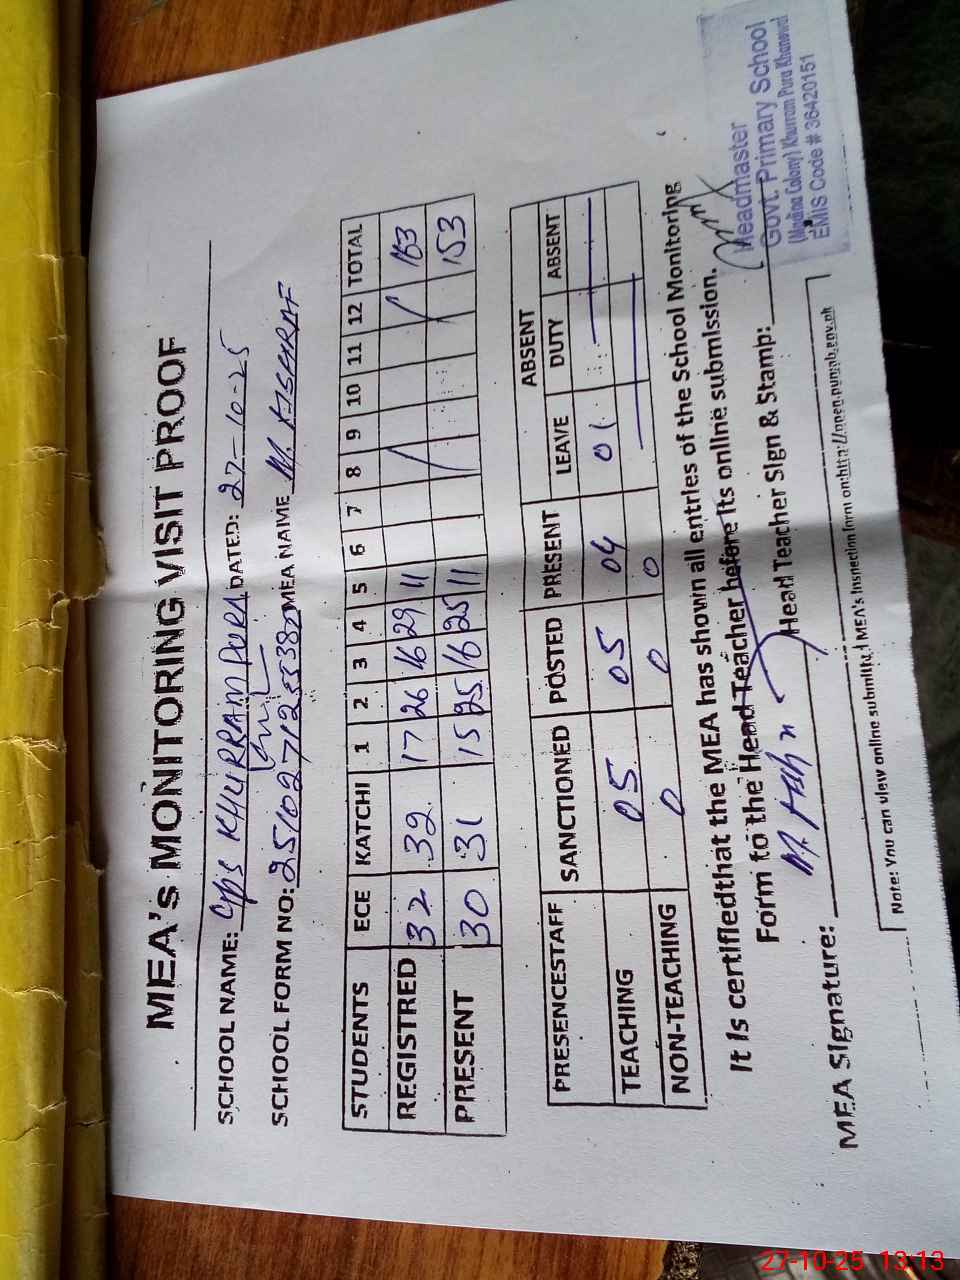 MEA's MONITORING VISIT PROOF
SCHOOL NAME: GPS KHURRAM PURA DATED: 27-10-25
SCHOOL FORM NO: MEA NAME M. ASHRAF
STUDENTS ECE KATCHI 1 2 3 4 5 6 7 8 9 10 11 12 TOTAL
REGISTRED 32 32 17 26 16 29 11 163
PRESENT 30 31 15 25 16 25 11 153
PRESENCESTAFF SANCTIONED POSTED PRESENT ABSENT
LEAVE DUTY ABSENT
TEACHING 05 05 04 01
NON-TEACHING 0 0 0
It Is certifiedthat the MEA has shown all entries of the School Monitoring
Form to the Head Teacher before its online submission.
MEA Signature: Head Teacher Sign & Stamp:
Headmaster
Govt. Primary School
(Madina Colony) Khurram Pura Khanewal
EMIS Code # 36420151
Note: You can view online submitted MEA's Inspection form on:http://open.punjab.gov.pk
27-10-25 13:13